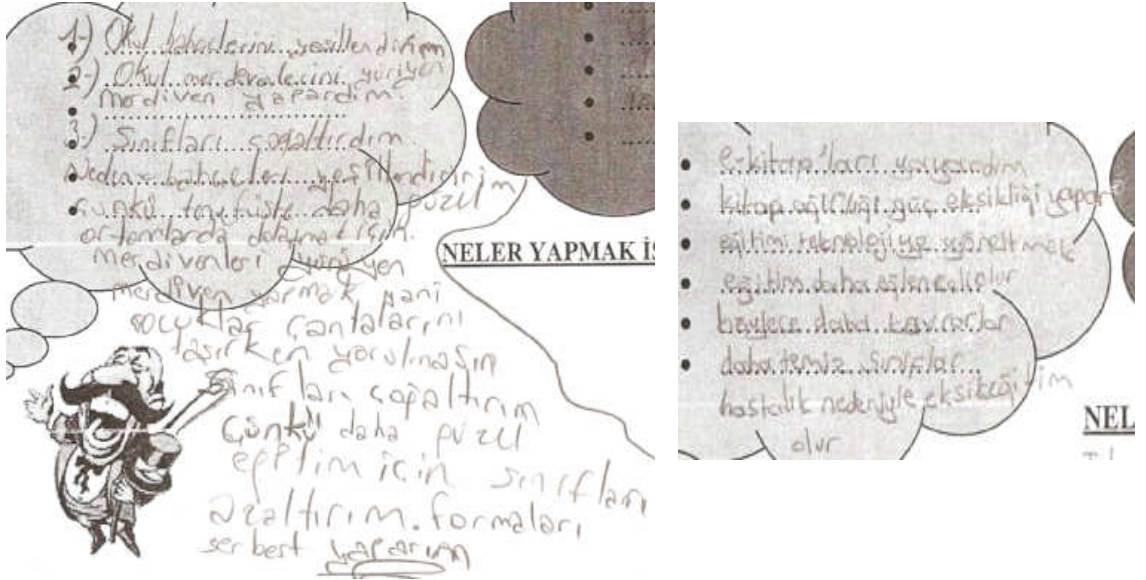 1-) Okul bahçelerini yeşillendiririm
2-) Okul merdivenlerini yürüyen
merdiven yapardım.
3-) Sınıfları çoğaltırdım
Neden = bahçeleri yeşillendiririm
çünkü daha güzel
ortamlarda için.
merdivenleri yürüyen
merdiven yani
çocuklar çantalarını
taşırken yorulmasın
Sınıfları çoğaltırım
Çünkü daha güzel
eğitim için sınıfları
azaltırım. formaları
serbest yaparım
NELER YAPMAK İS
e-kitap'ları yayardım
kitap ağırlığı güç eksikliği yapar
eğitimi teknolojiye yöneltmek
eğitim daha eğlenceli olur
böylece daha kavrarlar
daha temiz sınıflar
hastalık nedeniyle
olur
NEL